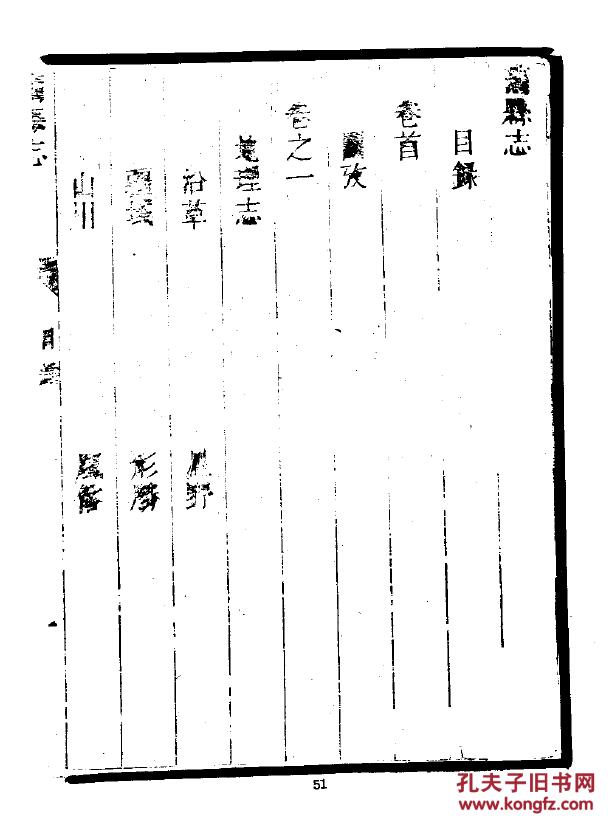 縣志
目錄
卷首
圖攷
卷之一
地理志
沿革 星野
疆域 形勝
山川 風俗
縣志 目錄
51
孔夫子旧书网
www.kongfz.com